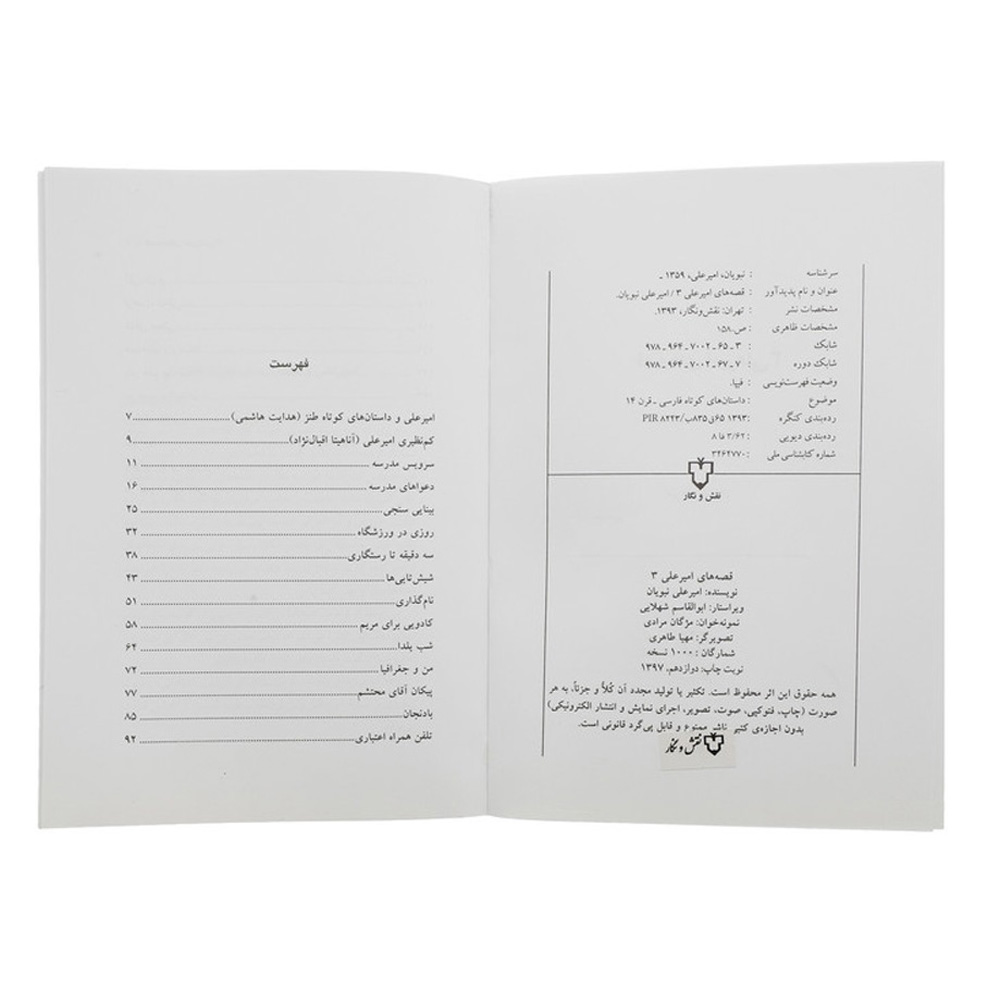 سرشناسه : نبویان، امیرعلی، ۱۳۵۹ ـ
عنوان و نام پدیدآور : قصه‌های امیرعلی ۳ / امیرعلی نبویان.
مشخصات نشر : تهران: نقش‌ونگار، ۱۳۹۳.
مشخصات ظاهری : ۱۵۸ص.
شابک : ۳ ـ ۶۵ ـ ۷۰۰۲ ـ ۹۶۴ ـ ۹۷۸
شابک دوره : ۷ ـ ۶۷ ـ ۷۰۰۲ ـ ۹۶۴ ـ ۹۷۸
وضعیت فهرست‌نویسی : فیپا.
موضوع : داستان‌های کوتاه فارسی ـ قرن ۱۴
رده‌بندی کنگره : ۱۳۹۳ ۶۵ق۸۳۵ب/PIR ۸۲۲۳
رده‌بندی دیویی : ۳/۶۲ فا ۸
شماره کتابشناسی ملی : ۳۴۶۴۷۷۰
نقش و نگار
قصه‌های امیرعلی ۳
نویسنده: امیرعلی نبویان
ویراستار: ابوالقاسم شهلایی
نمونه‌خوان: مژگان مرادی
تصویرگر: مهیا طاهری
شمارگان: ۱۰۰۰ نسخه
نوبت چاپ: دوازدهم، ۱۳۹۷
همه حقوق این اثر محفوظ است. تکثیر یا تولید مجدد آن کُلاً و جزئاً، به هر
صورت (چاپ، فتوکپی، صوت، تصویر، اجرای نمایش و انتشار الکترونیکی)
بدون اجازه‌ی کتبی ناشر ممنوع و قابل پی‌گرد قانونی است.
نقش و نگار
فهرست
امیرعلی و داستان‌های کوتاه طنز (هدایت هاشمی) ۷
کم‌نظیری امیرعلی (آناهیتا اقبال‌نژاد) ۹
سرویس مدرسه ۱۱
دعواهای مدرسه ۱۶
بینایی سنجی ۲۵
روزی در ورزشگاه ۳۲
سه دقیقه تا رستگاری ۳۸
شیش‌تایی‌ها ۴۳
نام‌گذاری ۵۱
کادویی برای مریم ۵۸
شب یلدا ۶۴
من و جغرافیا ۷۲
پیکان آقای محتشم ۷۷
بادنجان ۸۵
تلفن همراه اعتباری ۹۲